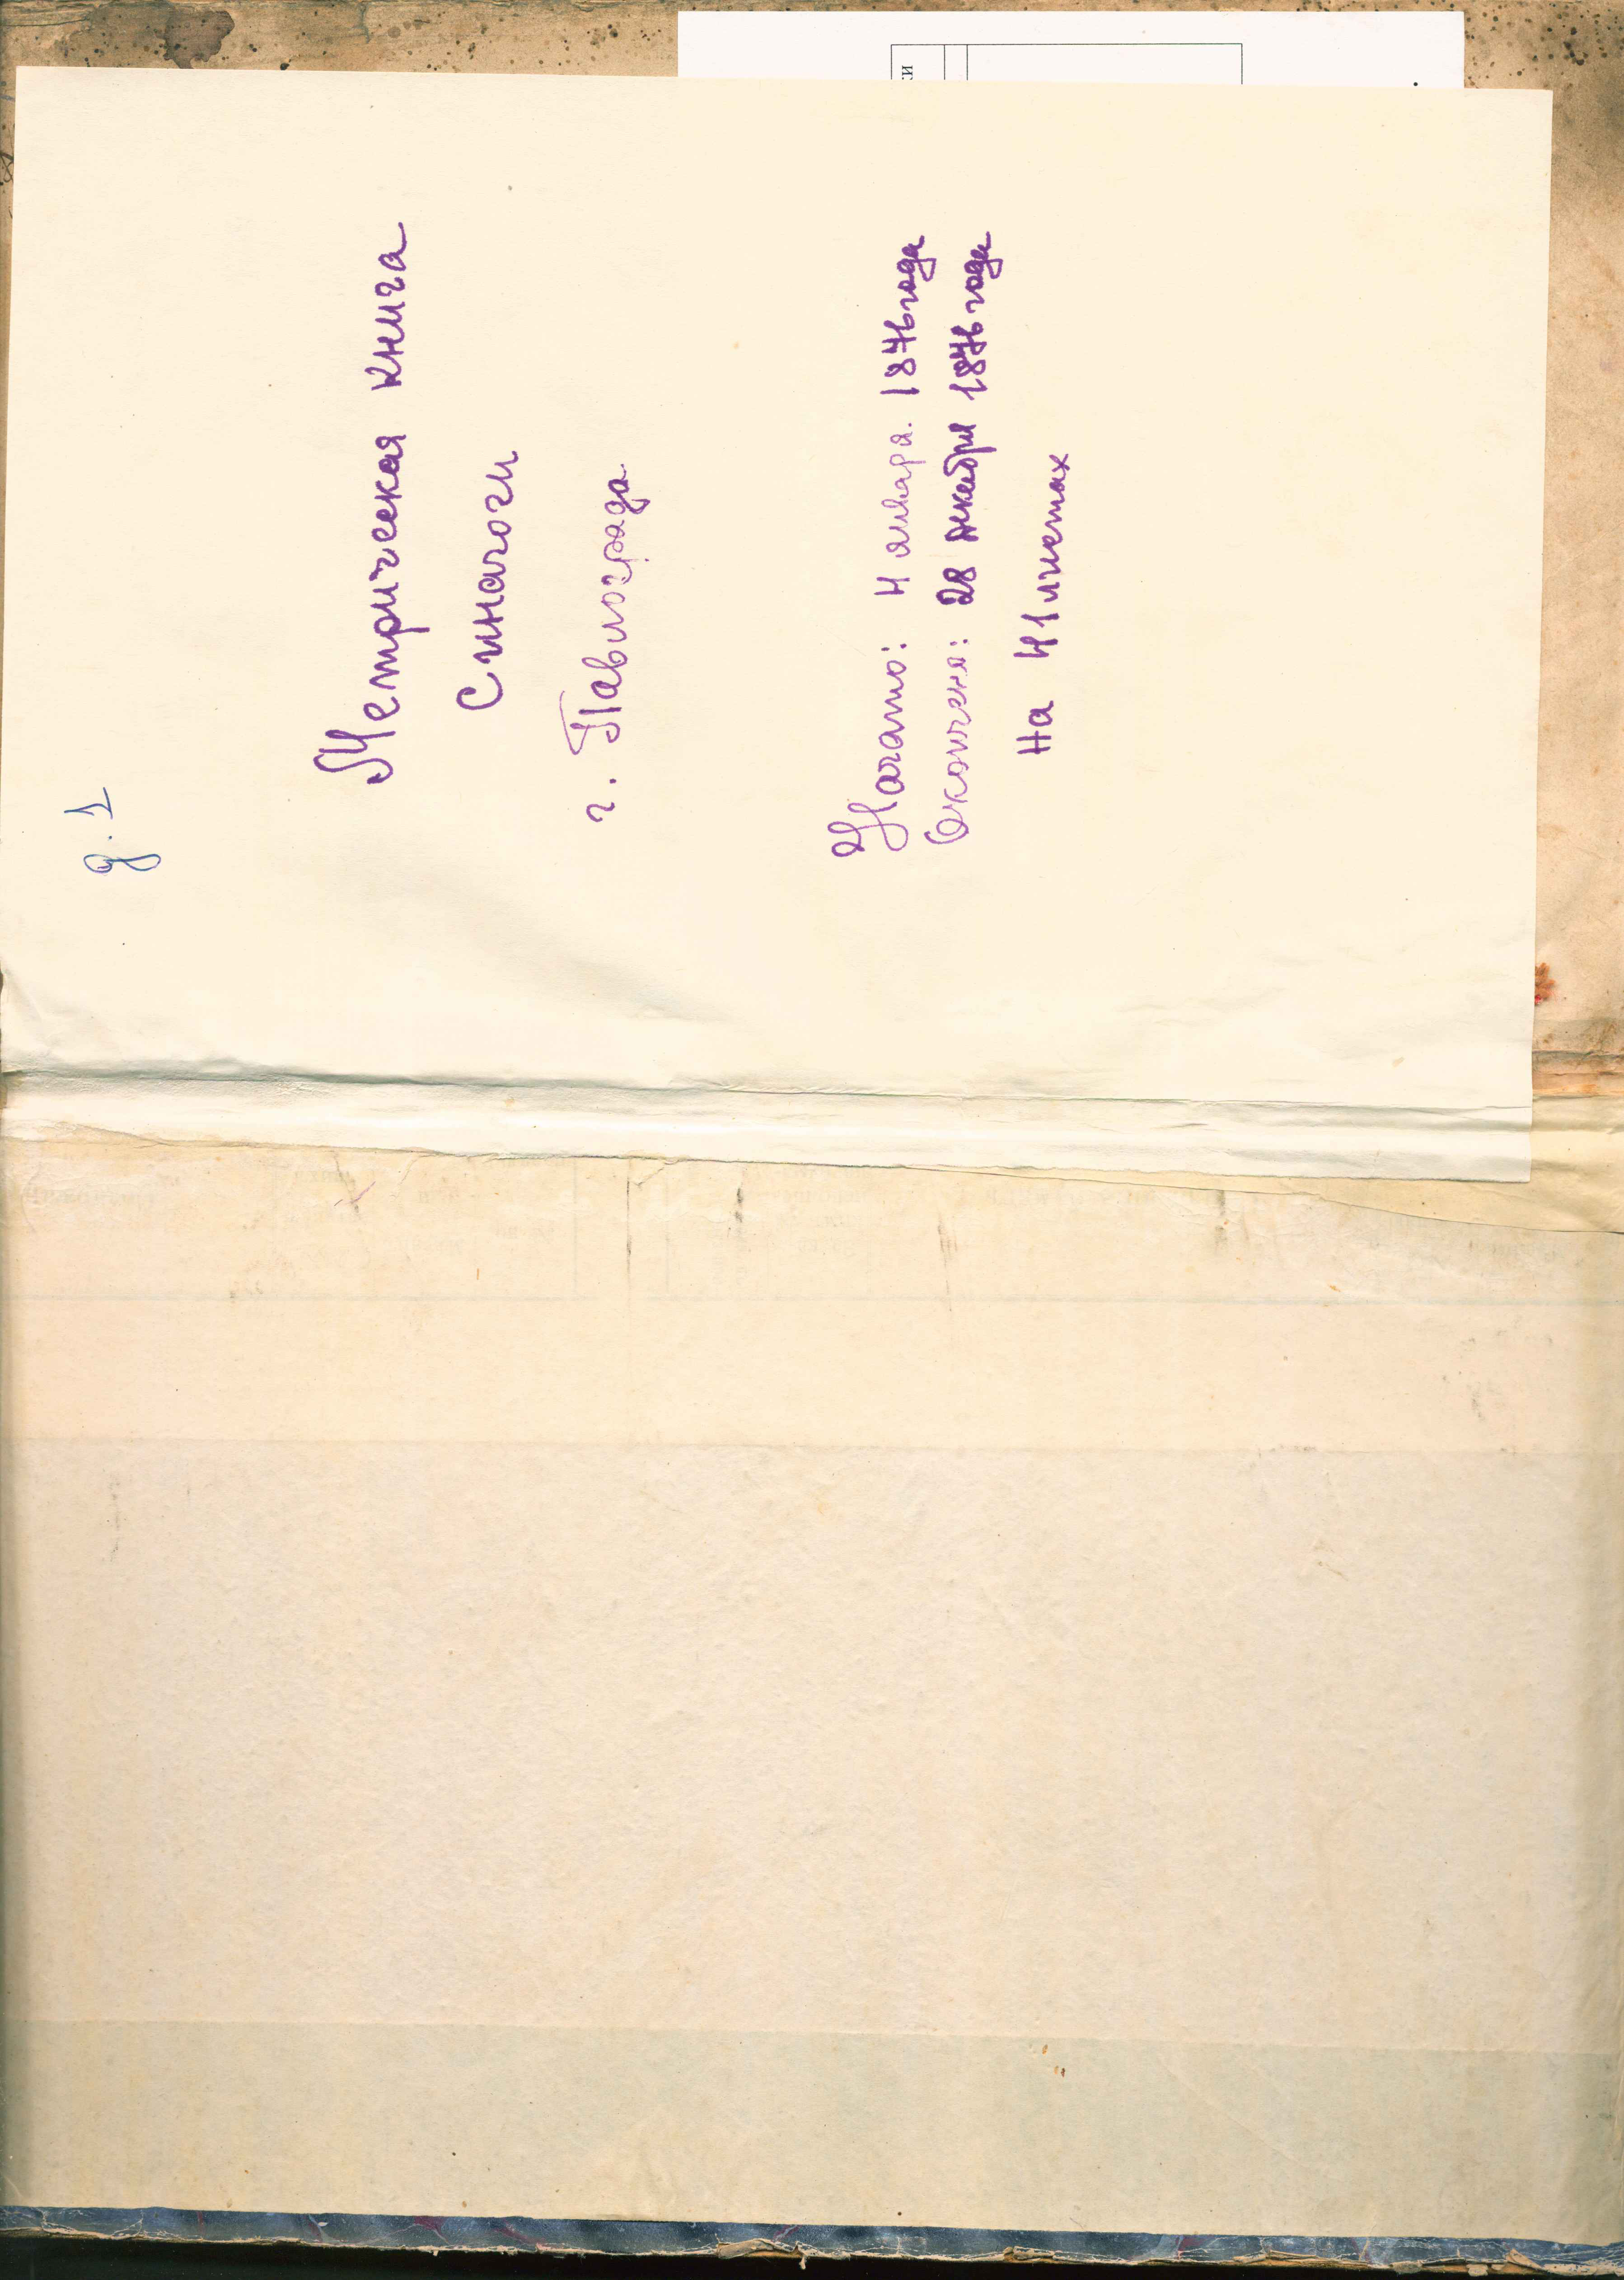 д. 1
Метрическая книга
Синагоги
г. Павлограда
Начато: 4 января. 1876 года
Окончено: 28 декабря 1876 года
На 41 листах